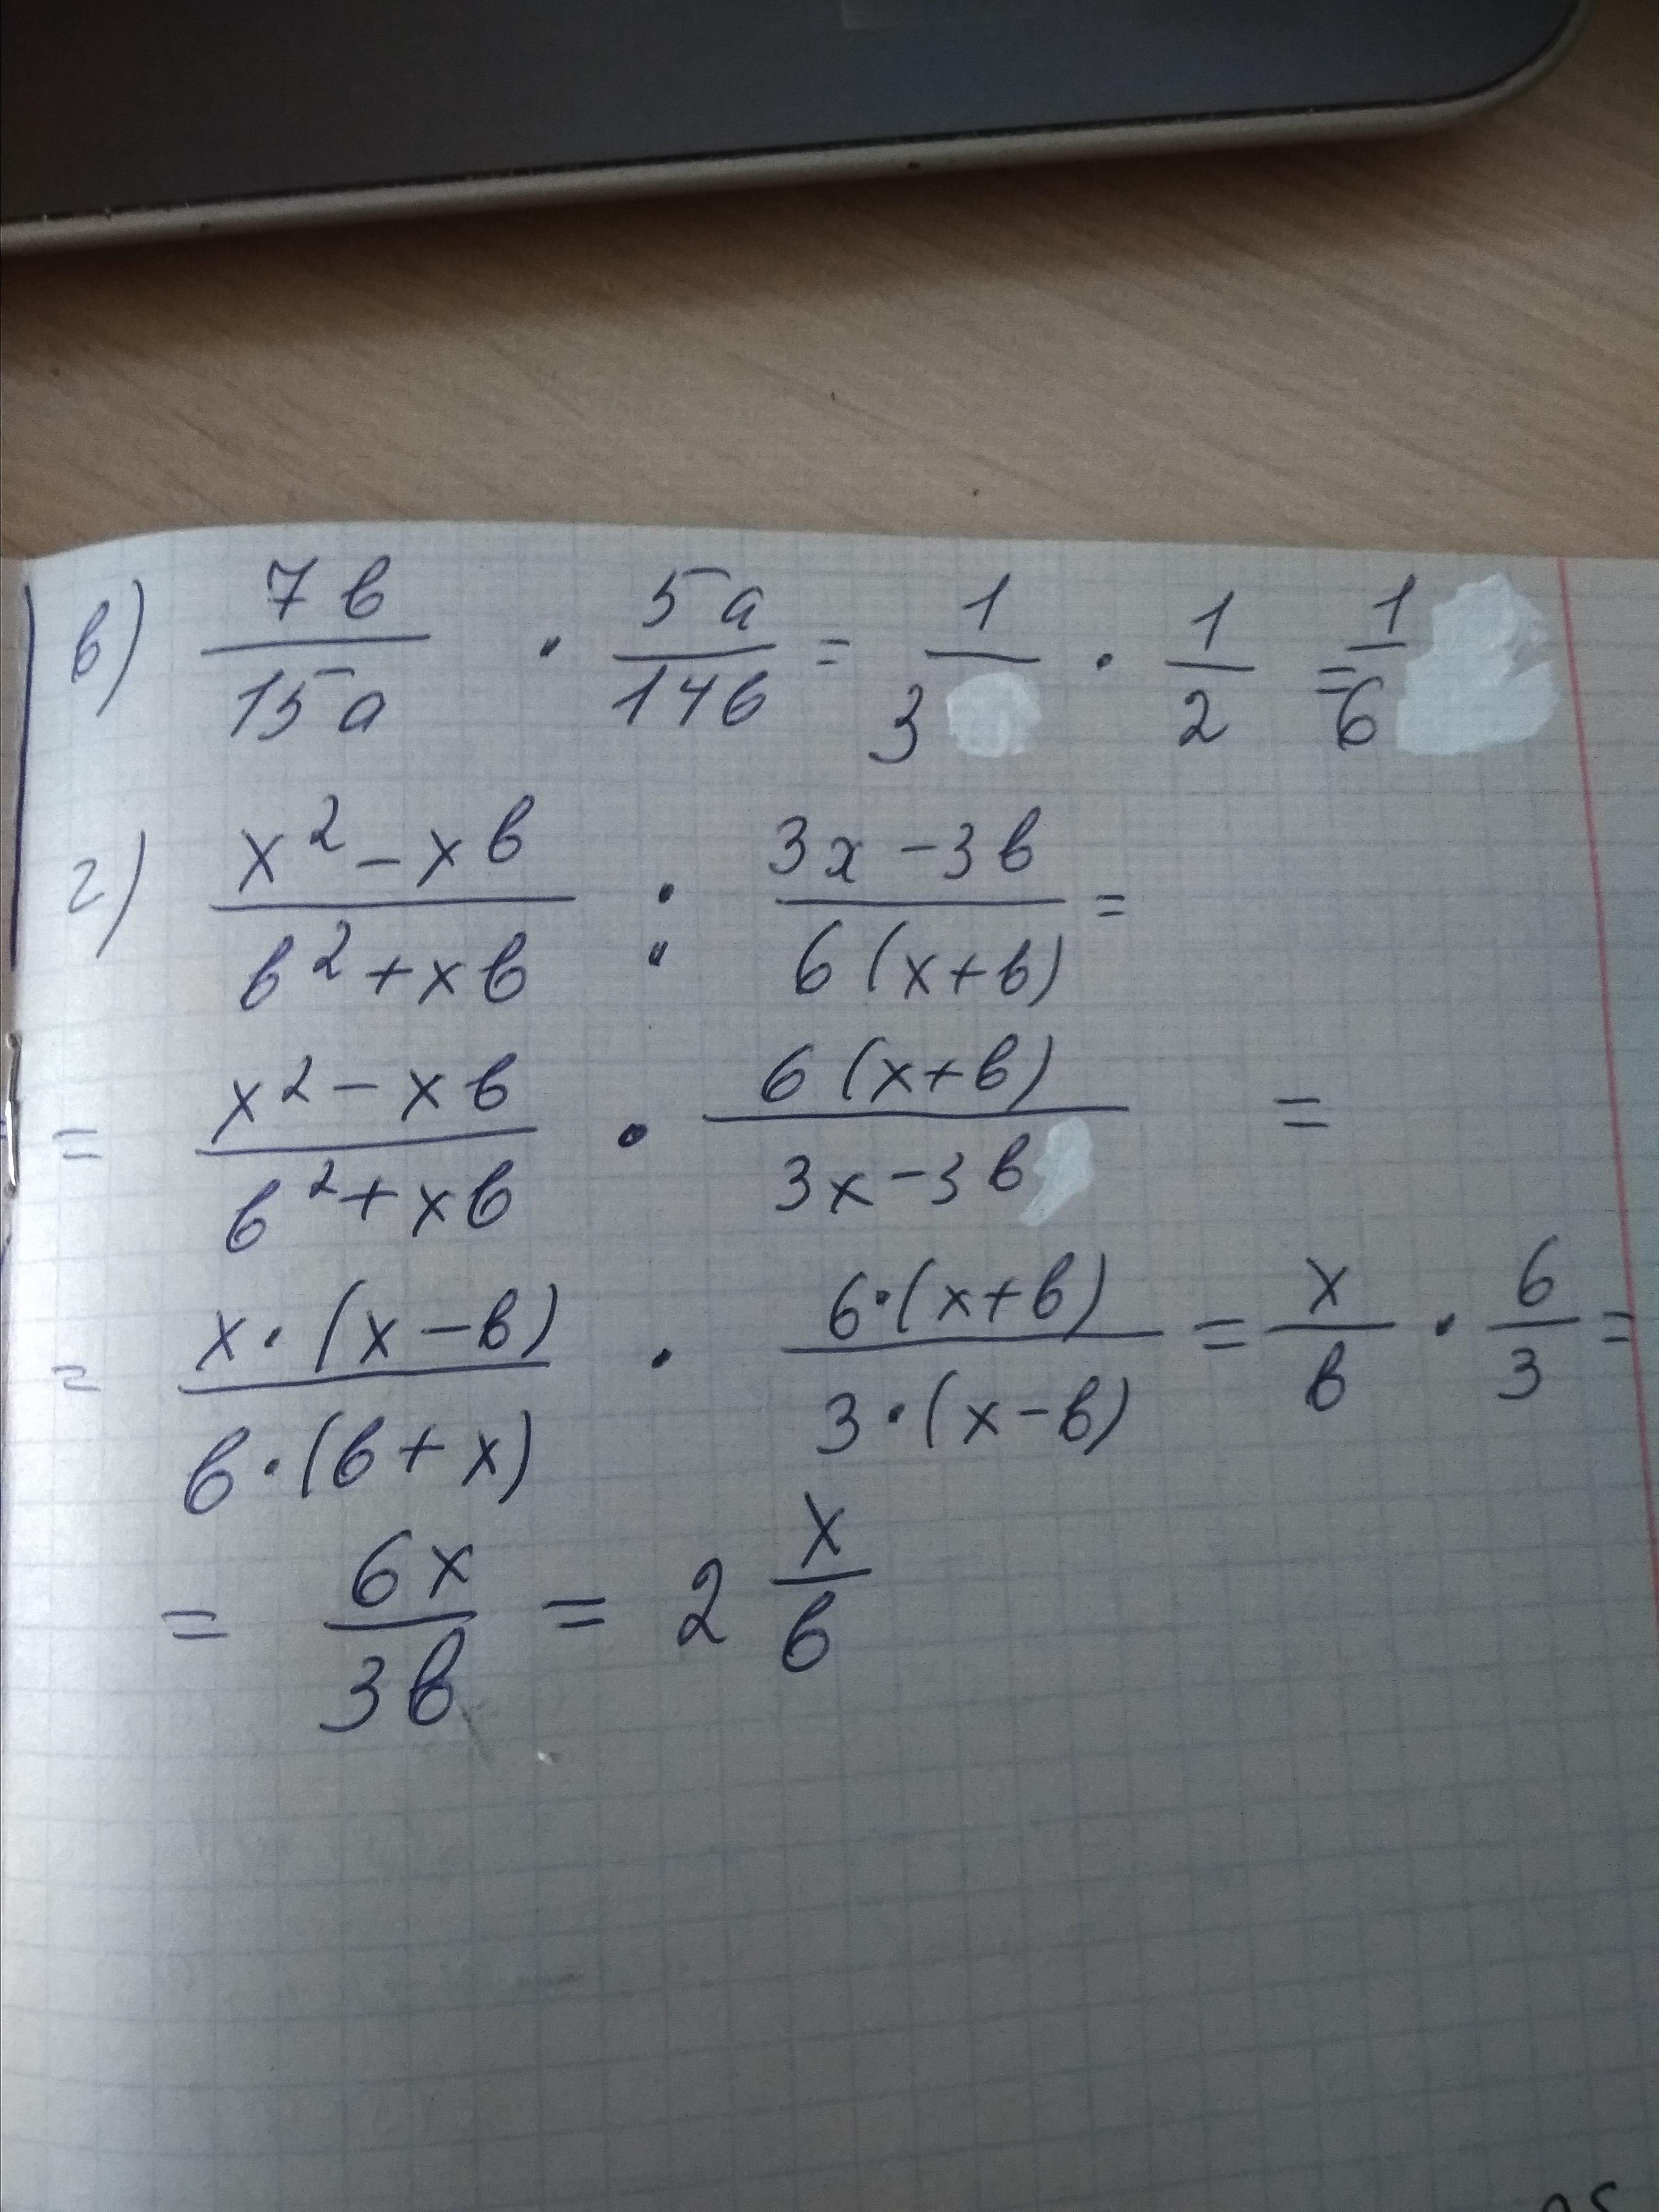 в) 7в/15а · 5а/14в = 1/3 · 1/2 = 1/6
г) x² - xв / в² + xв : 3x - 3в / 6(x+в) =
= x² - xв / в² + xв · 6(x+в) / 3x - 3в =
= x·(x-в) / в·(в+x) · 6·(x+в) / 3·(x-в) = x/в · 6/3 =
= 6x/3в = 2 x/в